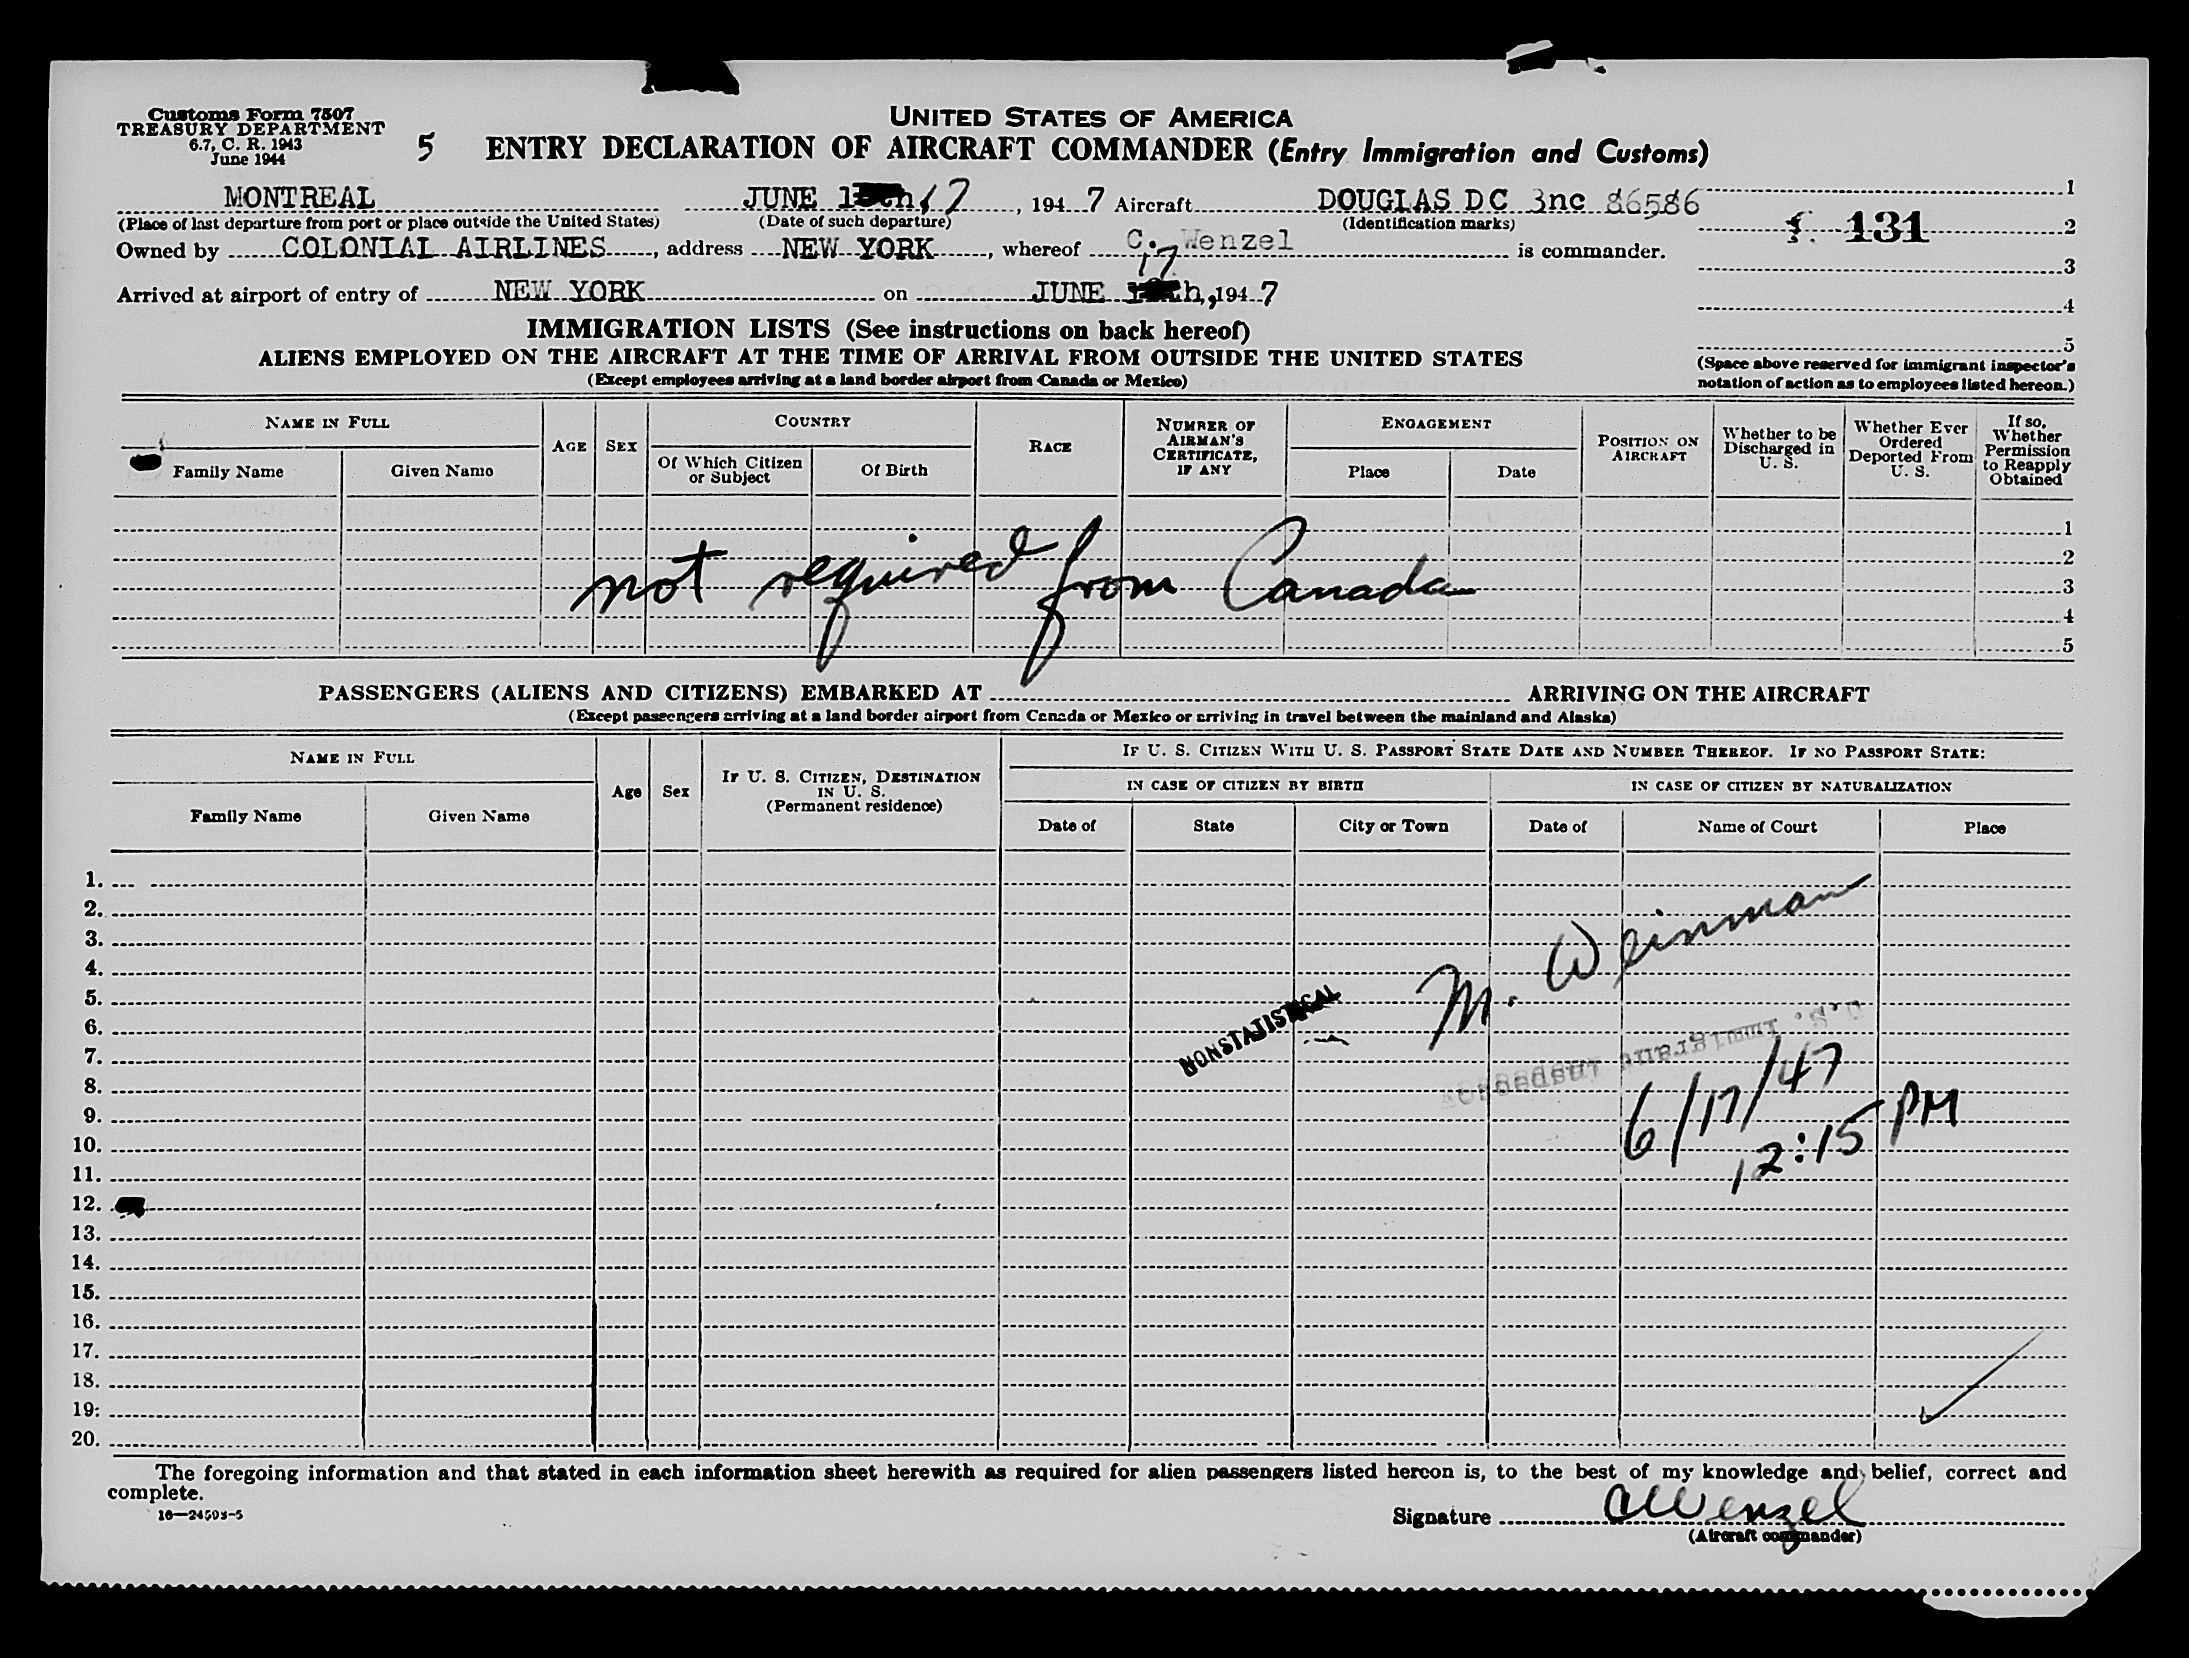 Customs Form 7507
TREASURY DEPARTMENT
6.7, C. R. 1943
June 1944
5
UNITED STATES OF AMERICA
ENTRY DECLARATION OF AIRCRAFT COMMANDER (Entry Immigration and Customs)
MONTREAL JUNE 17, 1947 Aircraft DOUGLAS DC 3nc 86586 1
(Place of last departure from port or place outside the United States) (Date of such departure) (Identification marks)
131 2
Owned by COLONIAL AIRLINES, address NEW YORK, whereof C. Wenzel is commander.
3
17
Arrived at airport of entry of NEW YORK on JUNE th, 1947
4
IMMIGRATION LISTS (See instructions on back hereof)
5
ALIENS EMPLOYED ON THE AIRCRAFT AT THE TIME OF ARRIVAL FROM OUTSIDE THE UNITED STATES
(Space above reserved for immigrant inspector's
notation of action as to employees listed hereon.)
(Except employees arriving at a land border airport from Canada or Mexico)
NAME IN FULL
Family Name Given Name
AGE
SEX
COUNTRY
Of Which Citizen
or Subject
Of Birth
RACE
NUMBER OF
AIRMAN'S
CERTIFICATE,
IF ANY
ENGAGEMENT
Place Date
POSITION ON
AIRCRAFT
Whether to be
Discharged in
U. S.
Whether Ever
Ordered
Deported From
U. S.
If so,
Whether
Permission
to Reapply
Obtained
1
2
3
4
5
not required from Canada
PASSENGERS (ALIENS AND CITIZENS) EMBARKED AT ARRIVING ON THE AIRCRAFT
(Except passengers arriving at a land border airport from Canada or Mexico or arriving in travel between the mainland and Alaska)
NAME IN FULL
Family Name Given Name
Age
Sex
IF U. S. CITIZEN, DESTINATION
IN U. S.
(Permanent residence)
IF U. S. CITIZEN WITH U. S. PASSPORT STATE DATE AND NUMBER THEREOF. IF NO PASSPORT STATE:
IN CASE OF CITIZEN BY BIRTH IN CASE OF CITIZEN BY NATURALIZATION
Date of State City or Town Date of Name of Court Place
1.
2.
3.
4.
5.
6.
7.
8.
9.
10.
11.
12.
13.
14.
15.
16.
17.
18.
19.
20.
M. Weinman
NONSTATISTICAL
U.S. Immigrant Inspector
6/17/47
12:15 PM
The foregoing information and that stated in each information sheet herewith as required for alien passengers listed hereon is, to the best of my knowledge and belief, correct and
complete.
16—24593-5
Signature CWenzel
(Aircraft commander)